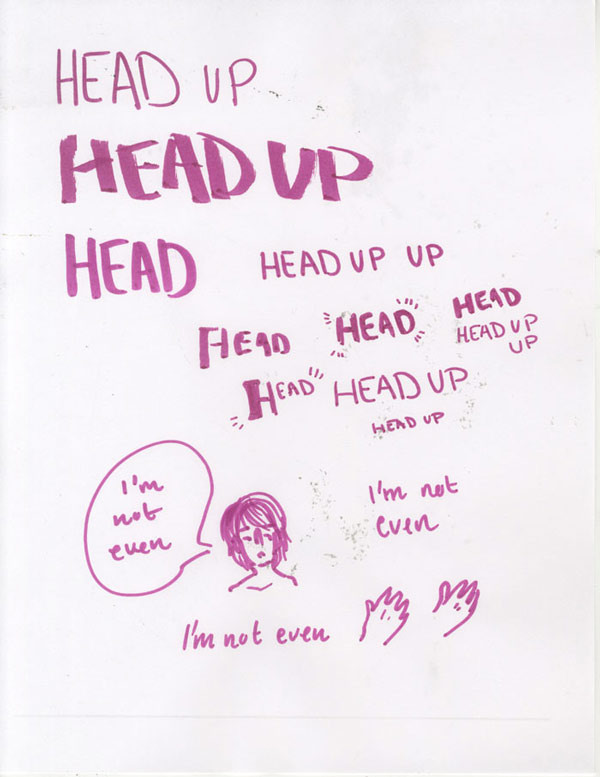 HEAD UP
HEAD UP
HEAD
HEAD UP UP
HEAD
HEAD
HEAD
HEAD UP
UP
HEAD
HEAD UP
HEAD UP
I'm
not
even
I'm not
even
I'm not even